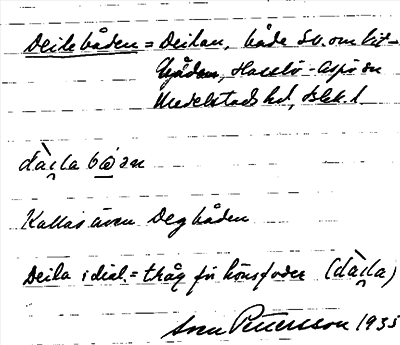 Deilebåden = Deilan, både SV. om Lit-
hjådan, Hasslö-Aspö sn
Medelstads hd, Blek. l

Kallas även Degbåden
Deila i dial. = tråg för hönsfoder (dàila)
Sven Pettersson 1935